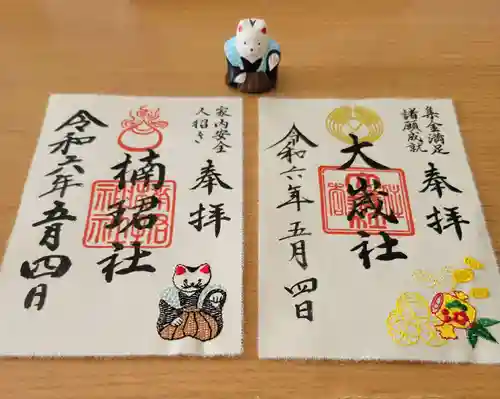 家内安全
人招き
奉拝
楠珺社
令和六年五月四日
集金満足
諸願成就
奉拝
大歳社
令和六年五月四日